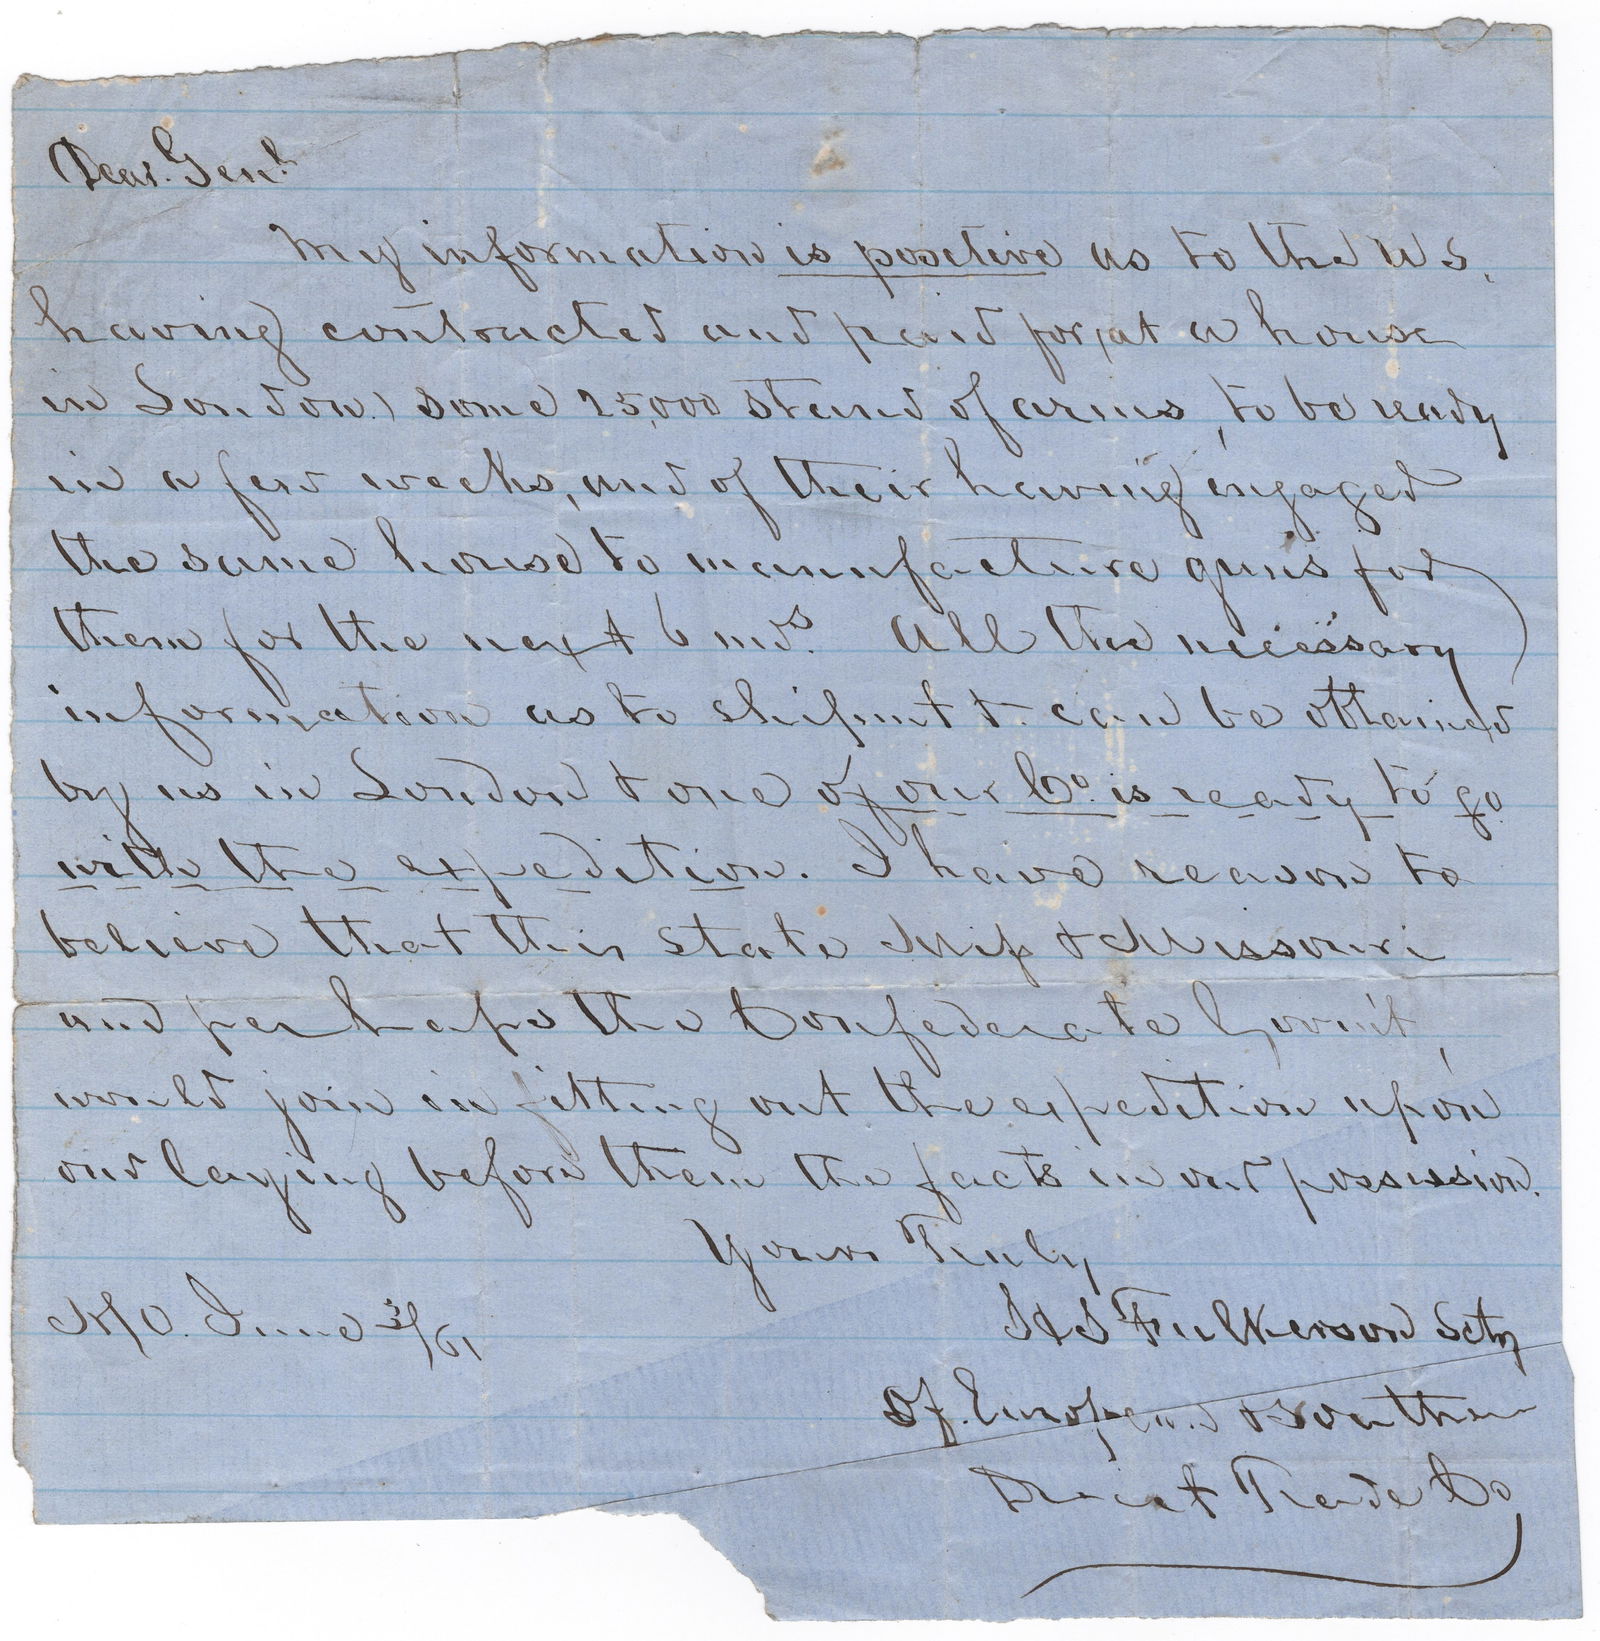 Dear Genl.
My information is positive as to the U S.
having contracted and paid for (at a house
in London) some 25,000 stand of arms, to be ready
in a few weeks, and of their having engaged
the same house to manufacture guns for
them for the next 6 mos. All the necessary
information as to shipmt & can be obtained
by us in London & one of our Co. is ready to go
with the expedition. I have reason to
believe that this state Missp & Missouri
and perhaps the Confederate Govm't,
would join in fitting out the expedition upon
our laying before them the facts in our possession.
Yours Truly
N/O. June 3/61
H S Fulkerson Scty
of European & Southern
Direct Trade Co